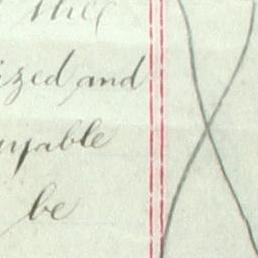 ized and
yable
be